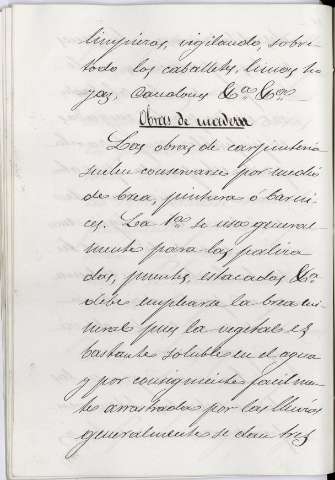 limpieza, vigilando, sobre
todo los caballets, limas ho
jas, canalones &a &a
Obras de madera
Las obras de carpinteria
suelen conservarse por medio
de brea, pintura ó barni
ces. La 1ª se usa general
mente para las paliza
das, puentes, estacadas &a
debe emplearse la brea mi
neral pues la vegetal es
bastante soluble en el agua
y por consiguiente facilmen
te arrastrada por las lluvias
generalmente se dan tres